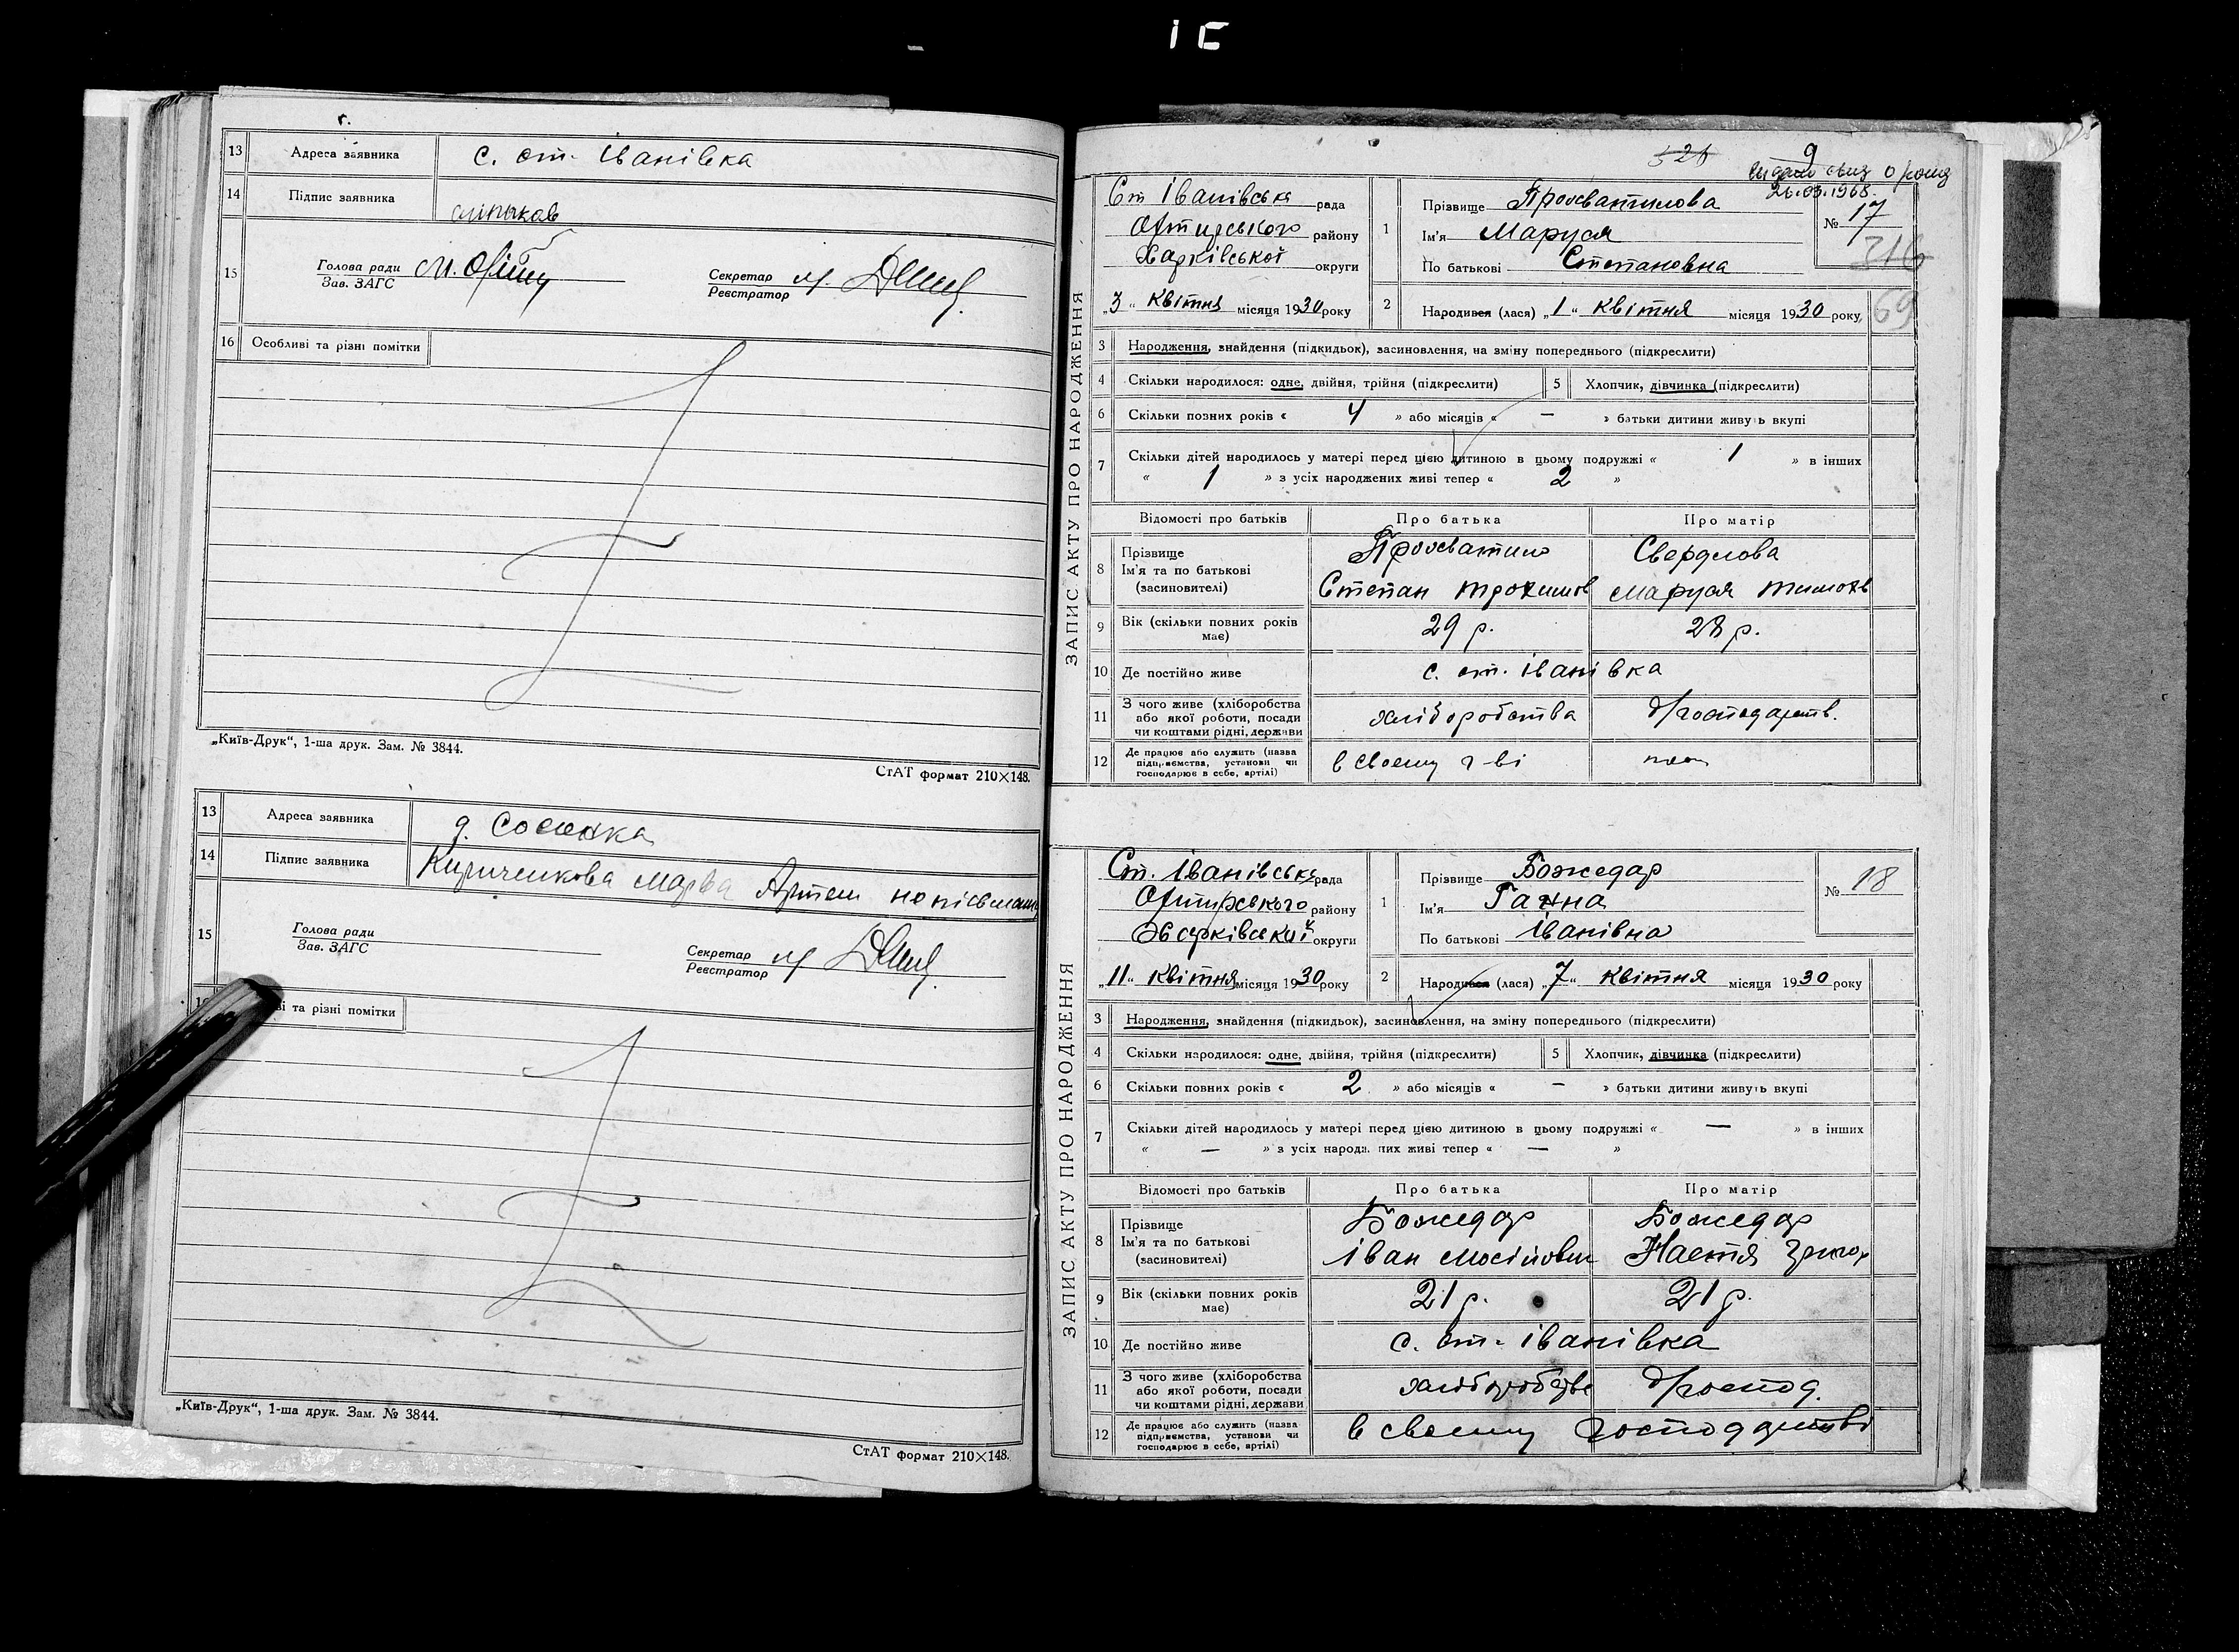 13 Адреса заявника с. ст. Іванівка
14 Підпис заявника
15 Голова ради Секретар
Зав. ЗАГС Реєстратор
16 Особливі та різні помітки
„Київ-Друк“, 1-ша друк. Зам. № 3844.
СтАТ формат 210×148.
13 Адреса заявника
14 Підпис заявника
15 Голова ради Секретар
Зав. ЗАГС Реєстратор
та різні помітки
„Київ-Друк“, 1-ша друк. Зам. № 3844.
СтАТ формат 210×148.
9
26.03.1968.
ЗАПИС АКТУ ПРО НАРОДЖЕННЯ
Ст Іванівська рада
району
Харківської округи
„3“ квітня місяця 1930 року
1 Прізвище Просватилова
Ім'я Маруся
По батькові Степановна
№ 17
69
2 Народився (лася) „1“ квітня місяця 1930 року
3 Народження, знайдення (підкидьок), засиновлення, на зміну попереднього (підкреслити)
4 Скільки народилося: одне, двійня, трійня (підкреслити) 5 Хлопчик, дівчинка (підкреслити)
6 Скільки позних років « 4 » або місяців « — » батьки дитини живуть вкупі
7 Скільки дітей народилось у матері перед цією дитиною в цьому подружжі « 1 » в інших
« 1 » з усіх народжених живі тепер « 2 »
Відомості про батьків Про батька Про матір
8 Прізвище Просватило Свердлова
Ім'я та по батькові
(засиновителі) Степан Трохимов Маруся Тимохв
9 Вік (скільки повних років має) 29 р. 28 р.
10 Де постійно живе с. ст. Іванівка
11 З чого живе (хліборобства
або якої роботи, посади хліборобства
чи коштами рідні, держави
12 Де працює або служить (назва
підприємства, установи чи в своєму г-ві
господарює в себе, артілі)
ЗАПИС АКТУ ПРО НАРОДЖЕННЯ
Ст. Іванівська рада
району
округи
„11“ квітня місяця 1930 року
1 Прізвище Божедар
Ім'я Ганна
По батькові Іванівна
№ 18
2 Народився (лася) „7“ квітня місяця 1930 року
3 Народження, знайдення (підкидьок), засиновлення, на зміну попереднього (підкреслити)
4 Скільки народилося: одне, двійня, трійня (підкреслити) 5 Хлопчик, дівчинка (підкреслити)
6 Скільки повних років « 2 » або місяців « — » батьки дитини живуть вкупі
7 Скільки дітей народилось у матері перед цією дитиною в цьому подружжі « — » в інших
« — » з усіх народжених живі тепер « — »
Відомості про батьків Про батька Про матір
8 Прізвище Божедар Божедар
Ім'я та по батькові
(засиновителі) Іван Мосійович Настя Григор
9 Вік (скільки повних років має) 21 р. 21 р.
10 Де постійно живе с. ст. Іванівка
11 З чого живе (хліборобства
або якої роботи, посади
чи коштами рідні, держави
12 Де працює або служить (назва
підприємства, установи чи в своєму господарстві
господарює в себе, артілі)